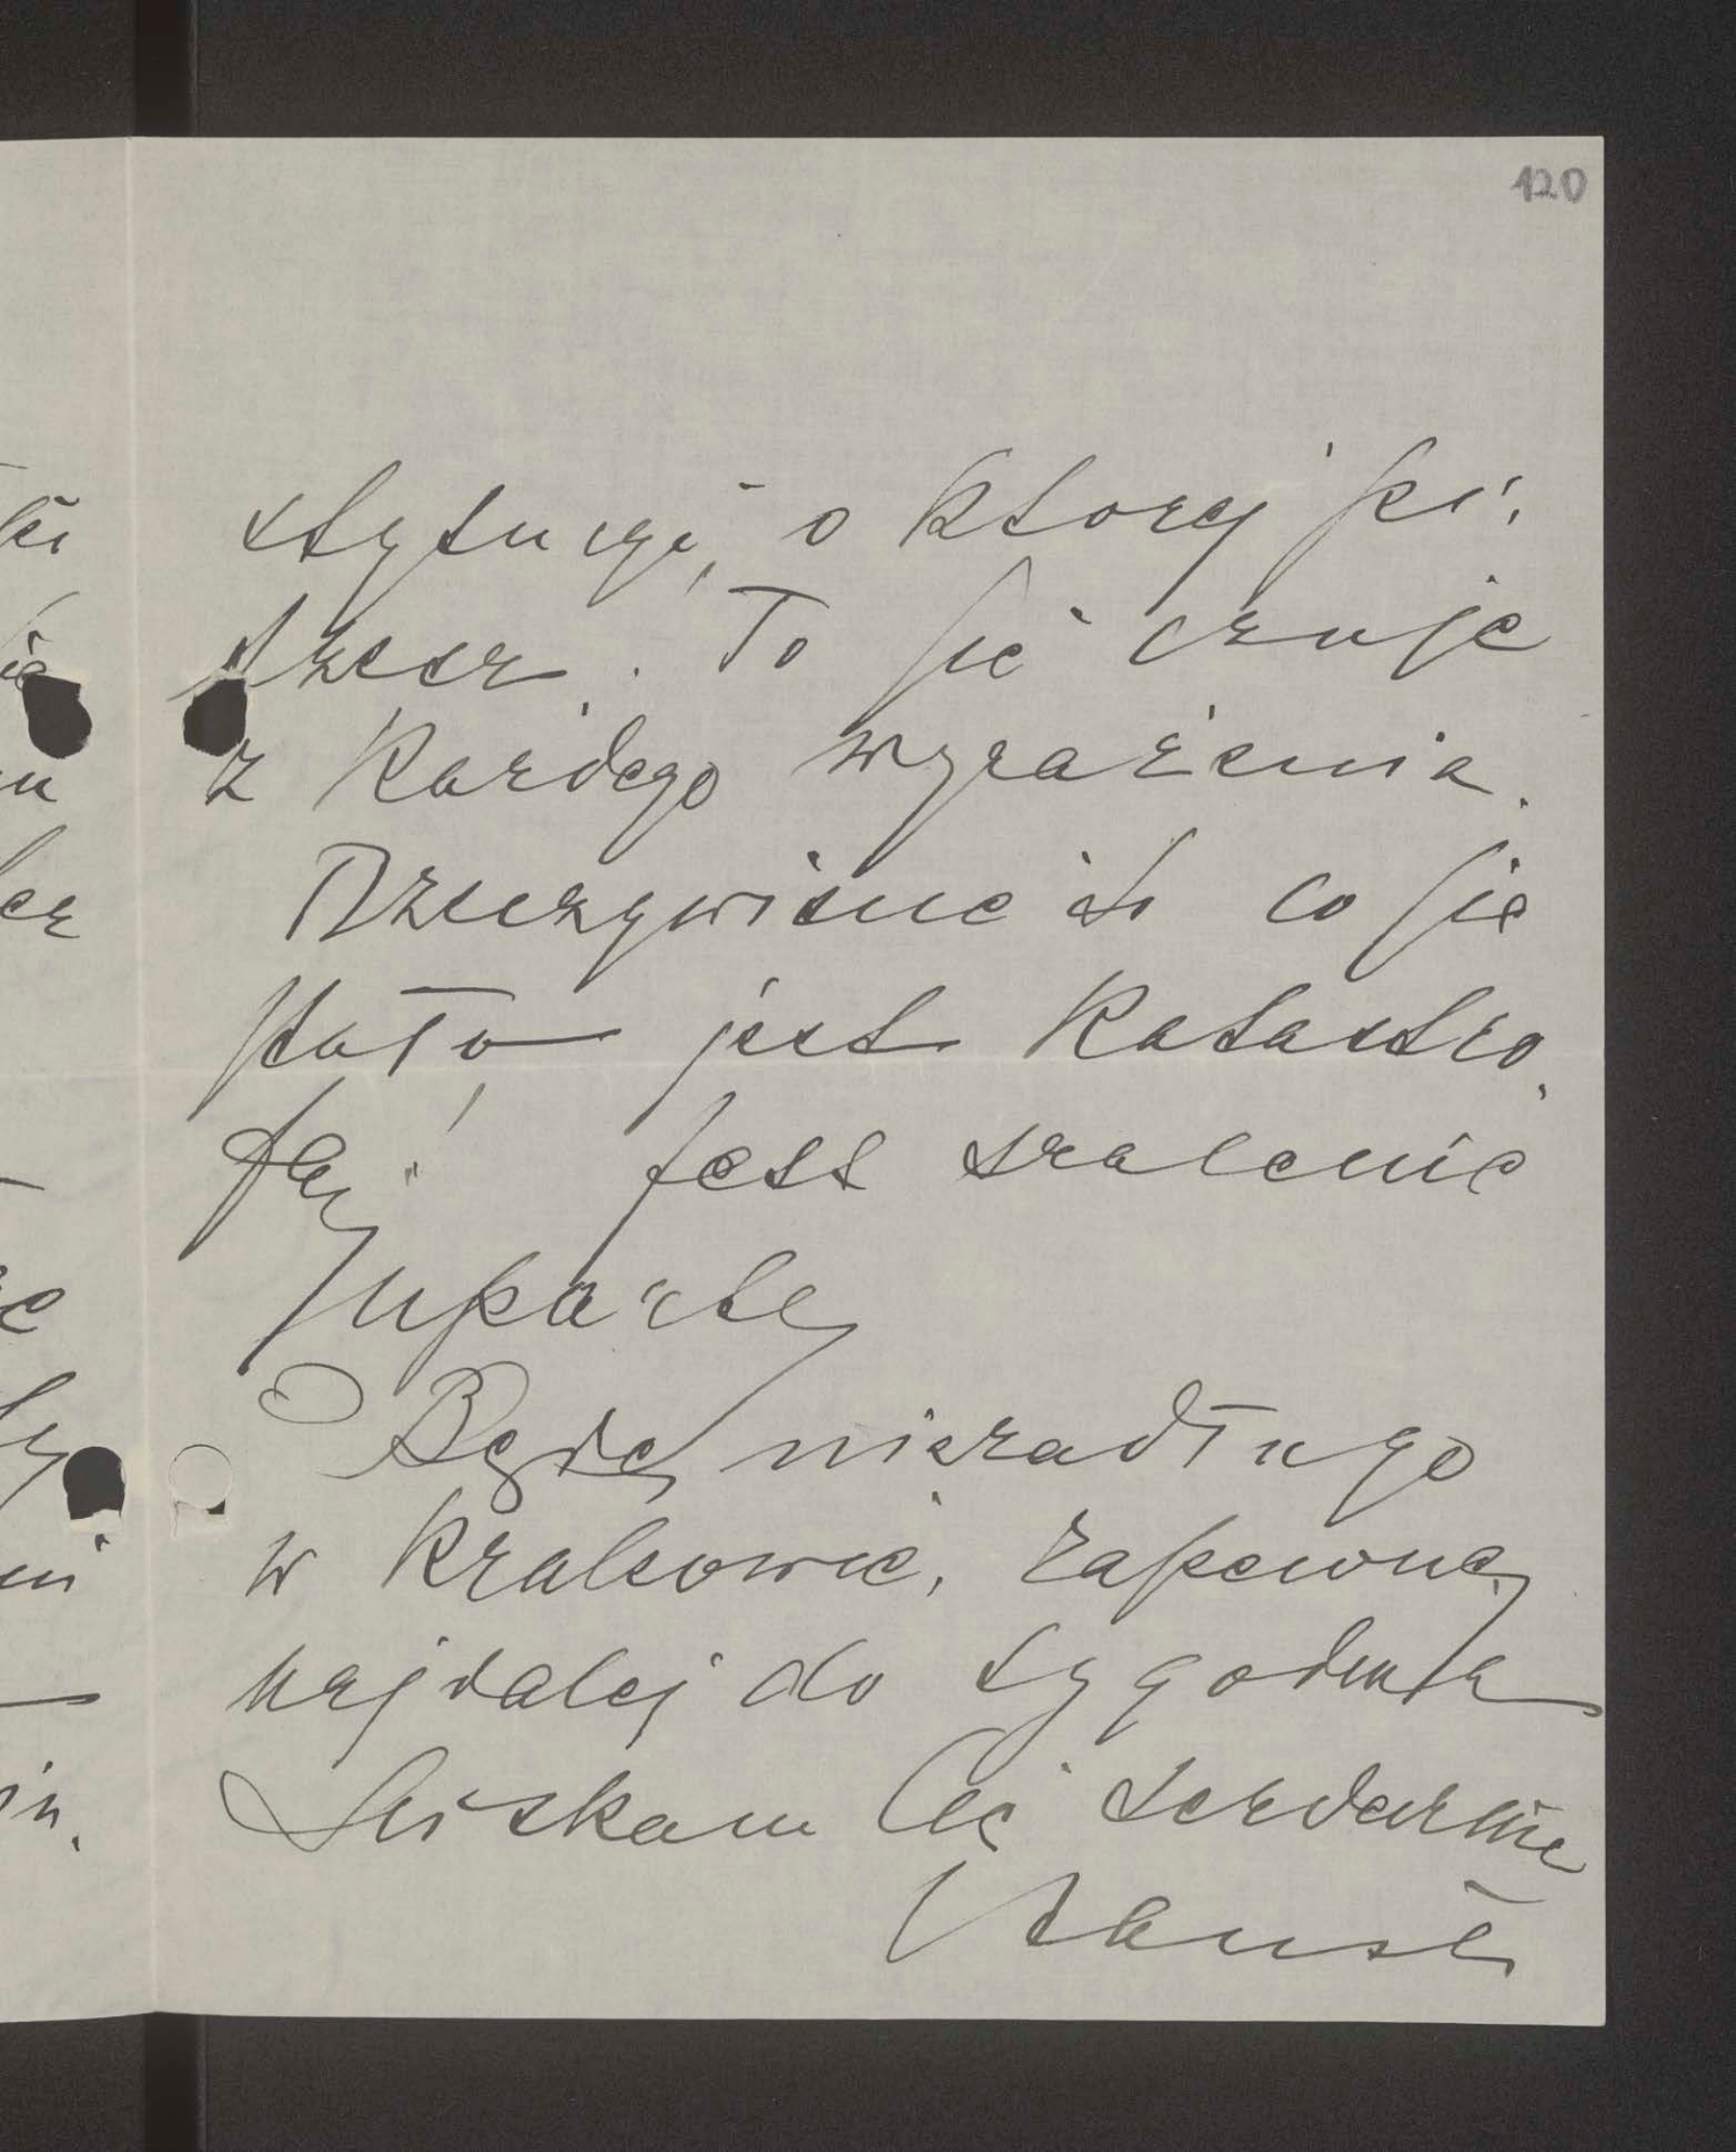 120
stytucyi, o ktorej pi-
szesz. To się czuje
z każdego wyrażenia.
Rzeczywiście to co się
stało jest katastro-
fą! Jest szalenie
uparty
Będę niezadługo
w Krakowie, zapewne
najdalej do tygodnia
Ściskam Cię serdecznie